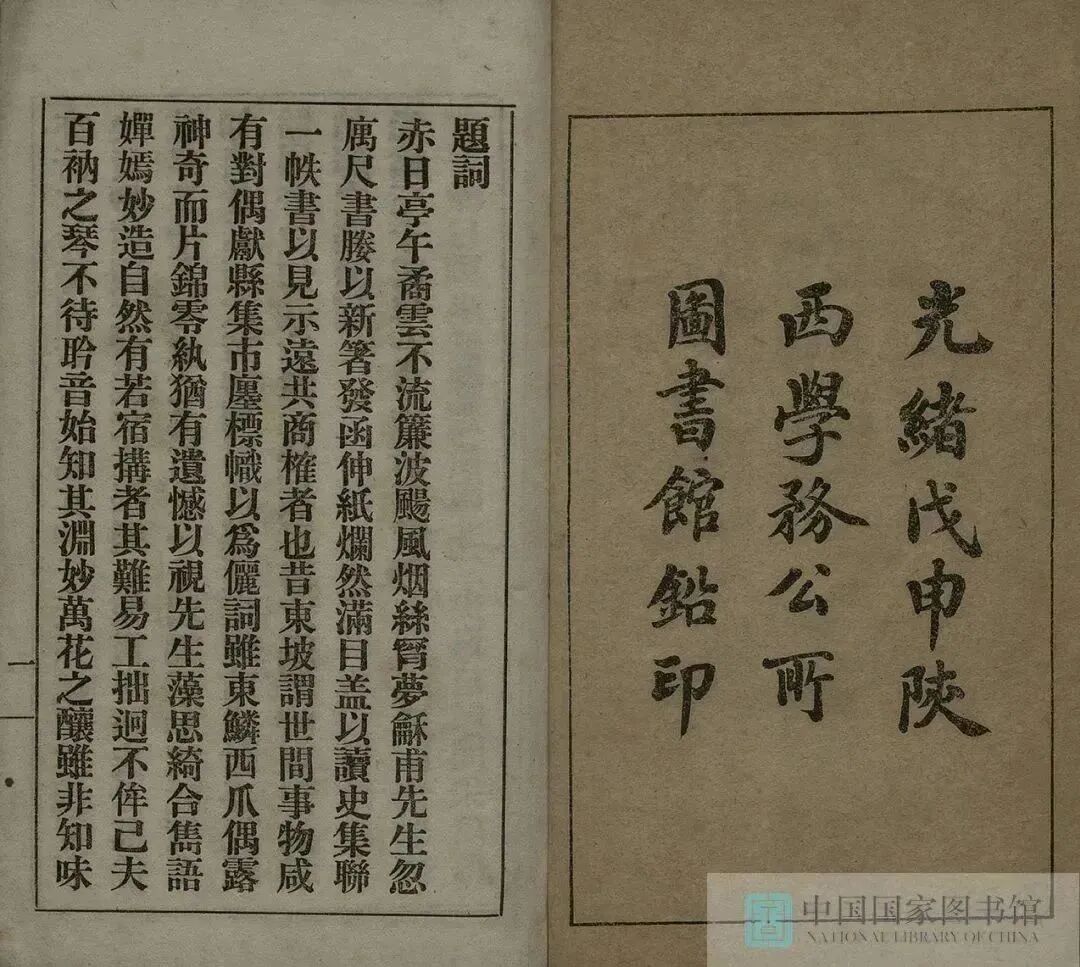 光緒戊申陝
西學務公所
圖書館鉛印
題詞
赤日亭午矞雲不流簾波颺風烟絲胷夢龢甫先生忽
厲尺書媵以新箸發函伸紙爛然滿目盖以讀史集聯
一帙書以見示遠共商榷者也昔東坡謂世間事物咸
有對偶獻縣集市廛標幟以爲儷詞雖東鱗西爪偶露
神奇而片錦零紈猶有遺憾以視先生藻思綺合雋語
嬋嫣妙造自然有若宿搆者其難易工拙迥不侔已夫
百衲之琴不待聆音始知其淵妙萬花之釀雖非知味
一
中国国家图书馆
NATIONAL LIBRARY OF CHINA